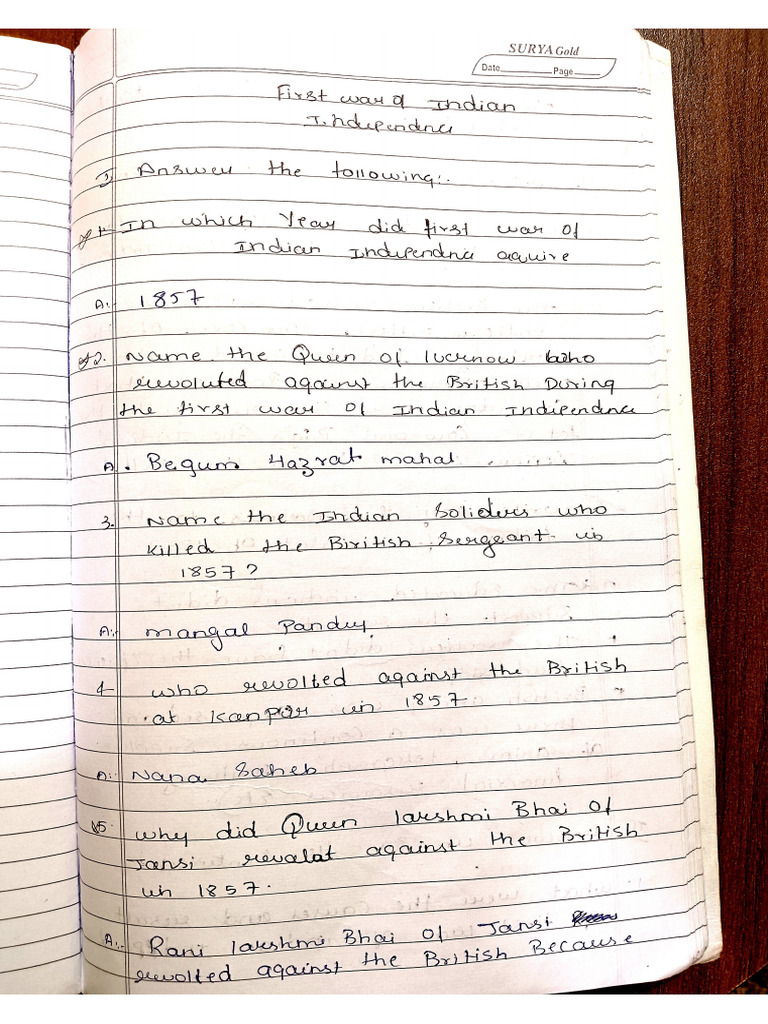 SURYA Gold
Date Page
First war of Indian
Independnce
I, Answer the following:-
1. In which Year did first war of
Indian Independnce aquire
A:- 1857
2. Name the Queen of lucknow who
revoluted against the British During
the first war of Indian Indipendnce
A. Begum Hazrat mahal
3. Name the Indian Soliders who
killed the Biritish Sergeant in
1857?
A:- mangal Pandey.
4 who revolted against the British
at Kanpur in 1857
A:- Nana Saheb
5. Why did Queen lakshmi Bhai of
Jansi revalat against the British
in 1857.
A:- Rani lakshmi Bhai of Jansi
revolted against the British Because